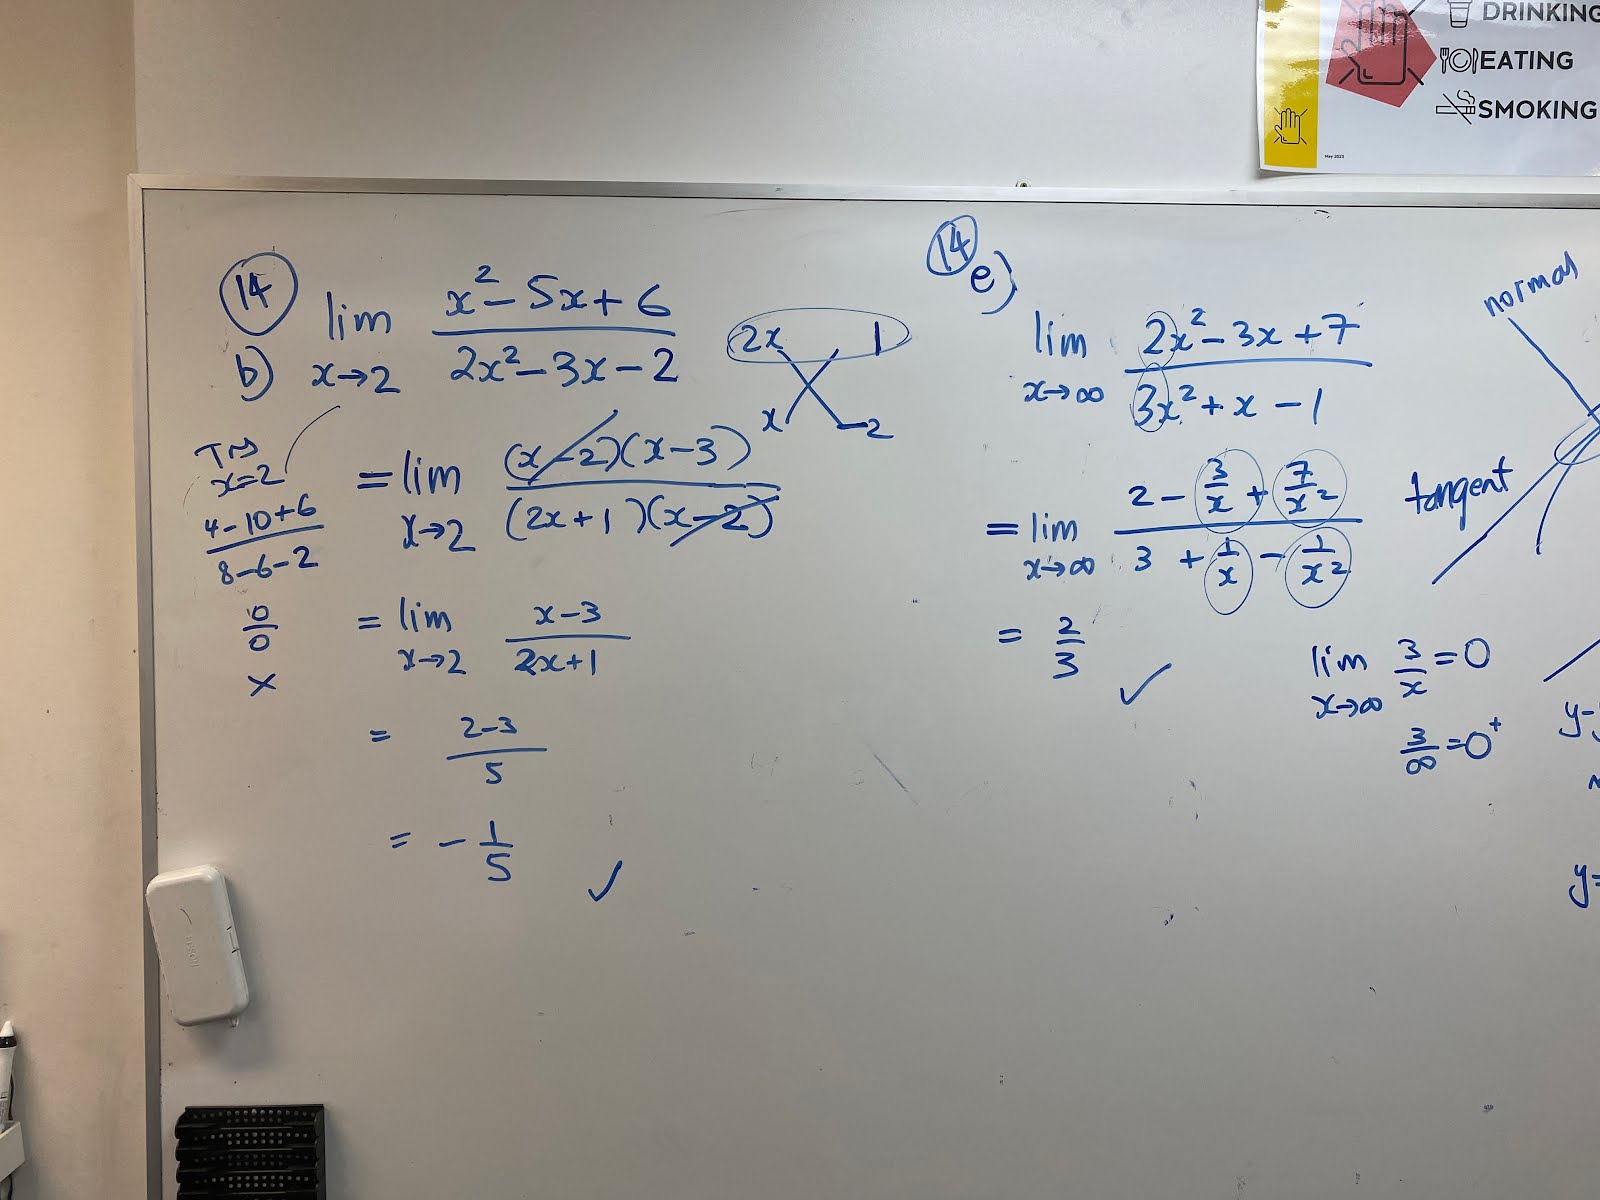 DRINKING
EATING
SMOKING
May 2023
14
b) lim x→2 (x² - 5x + 6)/(2x² - 3x - 2)
2x 1
x -2
Try
x=2
(4-10+6)/(8-6-2)
0/0
×
= lim x→2 ((x-2)(x-3))/((2x+1)(x-2))
= lim x→2 (x-3)/(2x+1)
= (2-3)/5
= -1/5 ✓
14
e)
lim x→∞ (2x² - 3x + 7)/(3x² + x - 1)
= lim x→∞ (2 - 3/x + 7/x²)/(3 + 1/x - 1/x²)
= 2/3 ✓
lim x→∞ 3/x = 0
3/∞ = 0⁺
normal
tangent
y-
y=